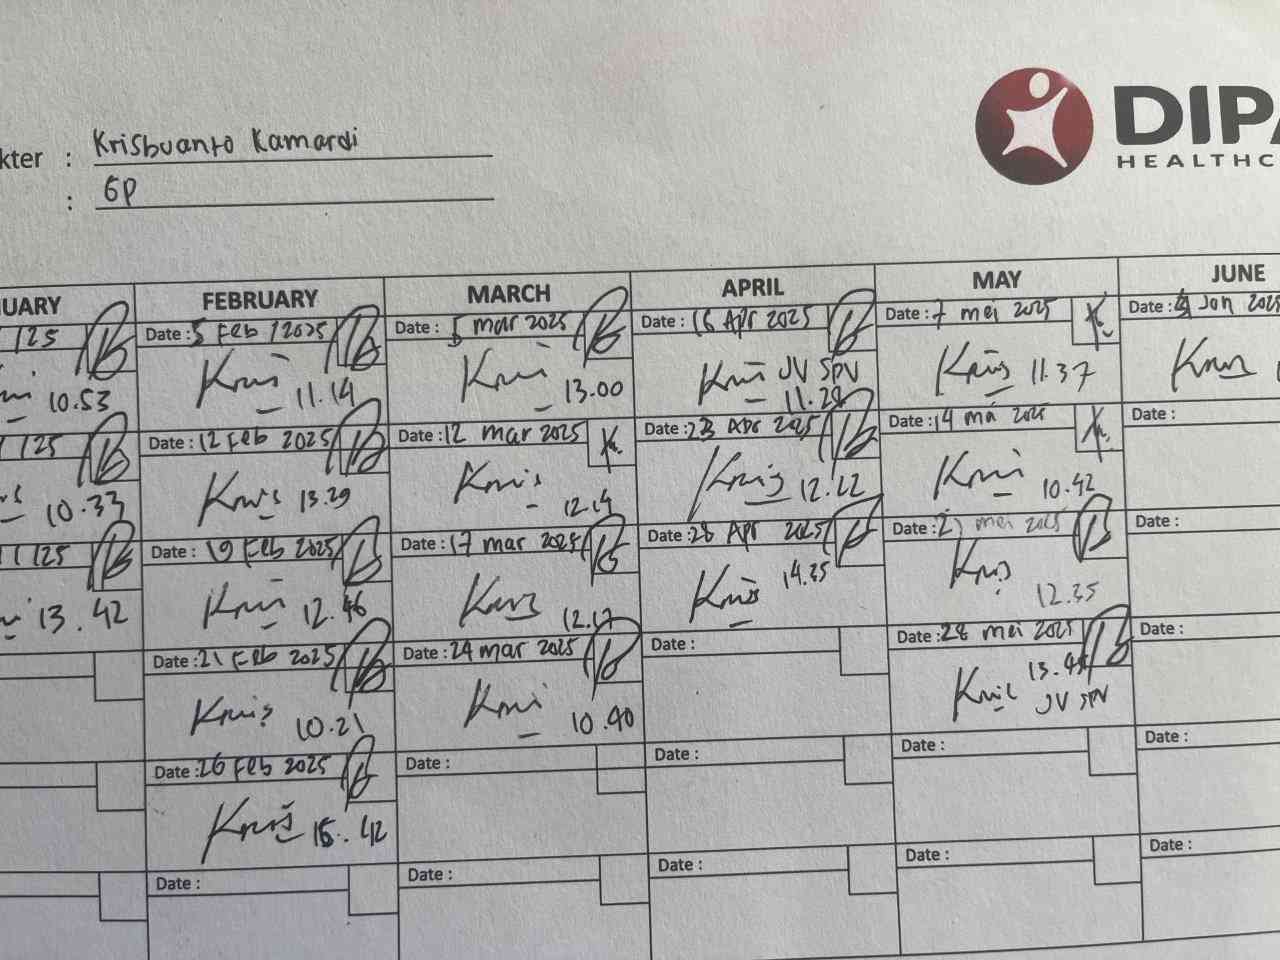 DIPA
HEALTHC
kter : Krisbuanto Kamardi
: GP
UARY FEBRUARY MARCH APRIL MAY JUNE
/25 Date : 5 Feb /2025 Date : 5 mar 2025 Date : 16 Apr 2025 Date : 7 mei 2025 Date : Jun 2025
10.53 Kris 11.14 Kris 13.00 Kris JV SPV 11.28 Kris 11.37 Kris
/25 Date : 12 Feb 2025 Date : 12 mar 2025 Date : 23 Apr 2025 Date : 14 mei 2025 Date :
10.33 Kris 13.29 Kris 12.14 Kris 12.22 Kris 10.42
/125 Date : 19 Feb 2025 Date : 17 mar 2025 Date : 28 Apr 2025 Date : 2 mei 2025 Date :
13.42 Kris 12.46 Kris 12.17 Kris 14.35 Kris 12.35
Date : 21 Feb 2025 Date : 24 mar 2025 Date : Date : 28 mei 2025 Date :
Kris 10.21 Kris 10.40 Kris 13.45 JV SPV
Date : 26 Feb 2025 Date : Date : Date : Date :
Kris 15.42
Date : Date : Date : Date : Date :